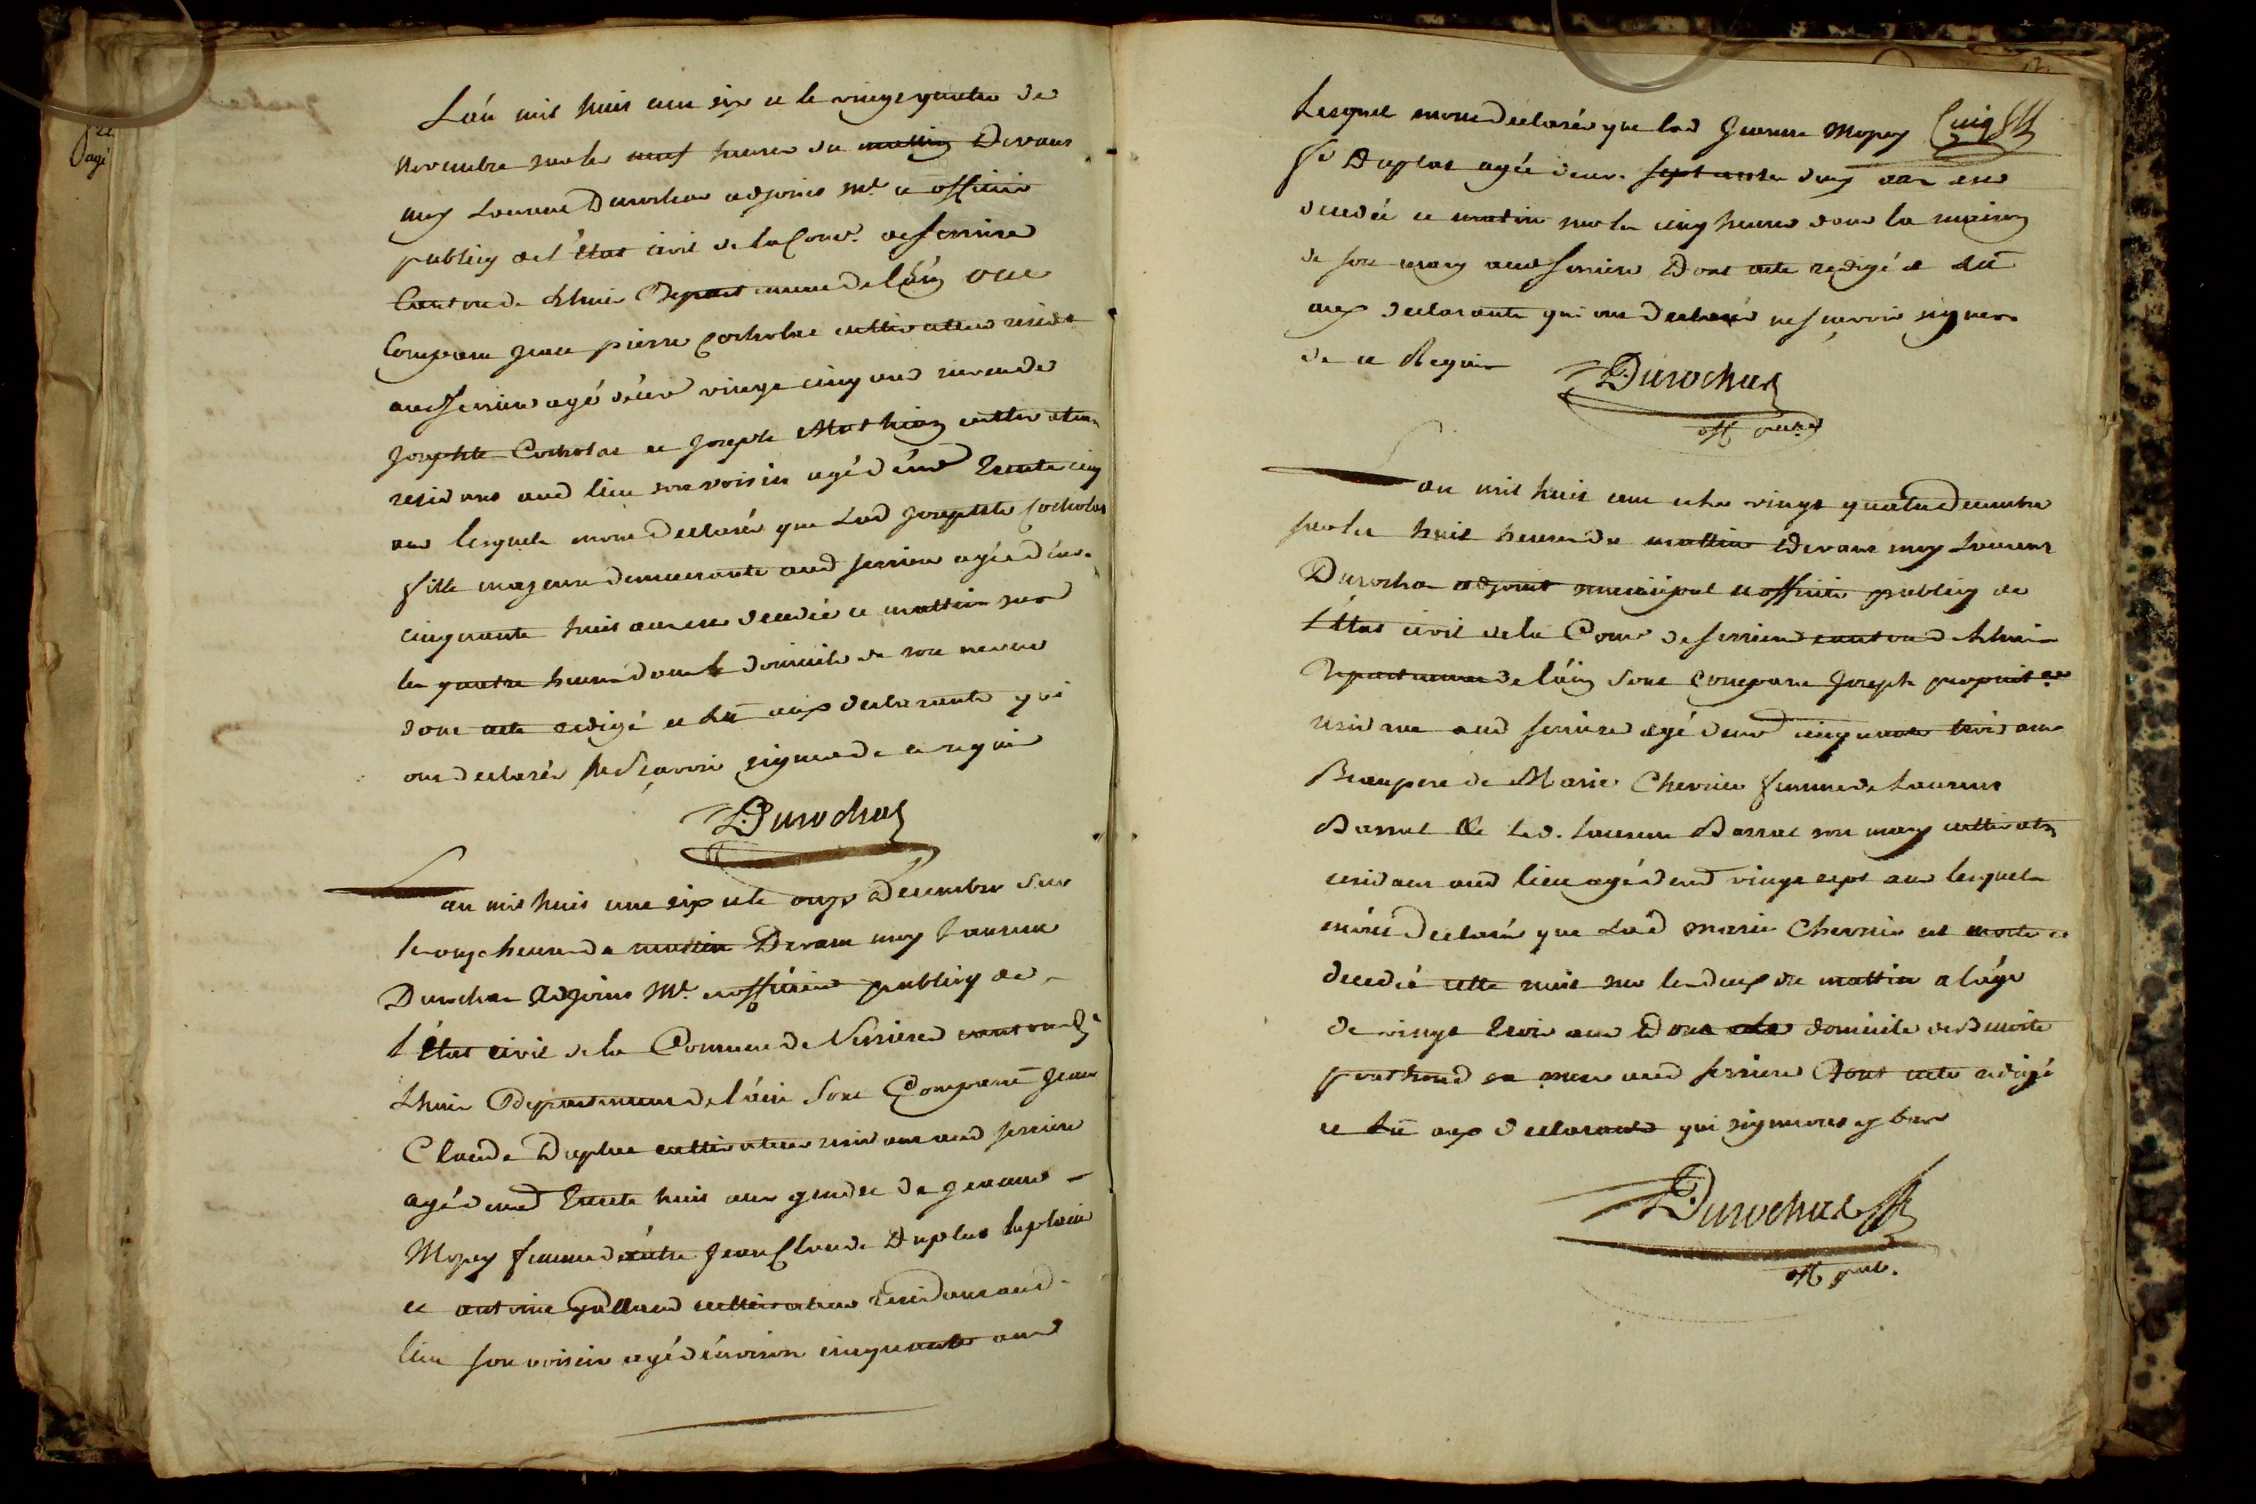 L'an mil huit cent six et le vingt quatre de
novembre sur les neuf heures du mattin Devant
moy Laurent Durochat adjoint Mal. et officier
publicq de l'état civil de la Come. de serriere
Canton de Lhuis Departement de l'ain ont
Comparu jean pierre Cocholat cultivateur residt
aud serriere agé d'env vingt cinq ans neveu de
josephte Cocholat et joseph Mathieu cultivateur
residant aud lieu son voisin agé d'env trente cinq
ans lesquels mont declarés que lad josephte Cocholat
fille mageure demeurante aud serriere agée d'env.
cinquante huit ans est decedée ce mattin sur
les quatre heures dans le domicile de son neveu
dont acte redigé et lû aux declarants qui
ont declarés ne sçavoir signer de ce requis
LDurochat
Lan mil huit cent six et le onze Décembre sur
les onze heures du mattin Devant moy Laurent
Durochat adjoint Mal. et officier publicq de
l'état civil de la Commune de Serriere canton de
Lhuis Departement de l'ain Sont Comparu jean
Claude Duplat cultivateur residant aud serriere
agé d'env trente huit ans gendre de jeanne
Mopey femme d'autre jean Claude Duplat
et antoine cultivateur residant aud
lieu son voisin agé d'environ cinquante ans
Lesquels mont declarés que lad jeanne Mopey
fe Duplat agée d'env. septante ans est
decedée ce matin sur les cinq heures dans la maison
de son mary aud serriere Dont acte redigé et lû
aux declarants qui ont declaré ne sçavoir signer
de ce Requis
LDurochat
off pub.
Lan mil huit cent et le vingt quatre Decembre
sur les huit heures du mattin Devant moy Laurent
Durochat adjoint municipal et officier publicq de
l'état civil de la Come de serriere canton de Lhuis
Departement de l'ain Sont Comparu joseph
residant aud serriere agé d'env cinquante trois ans
Beaupere de Marie Chevrier femme de Laurent
Barrat & led. Laurent Barrat son mary cultivatr
residant aud lieu agé d'env vingt sept ans lesquels
m'ont declaré que lad marie Chevrier est morte et
decedée cette nuit sur les deux du mattin a l'age
de vingt trois ans domicile de
sa mere aud serriere Dont acte redigé
et lû aux declarants qui
LDurochat
off pub.